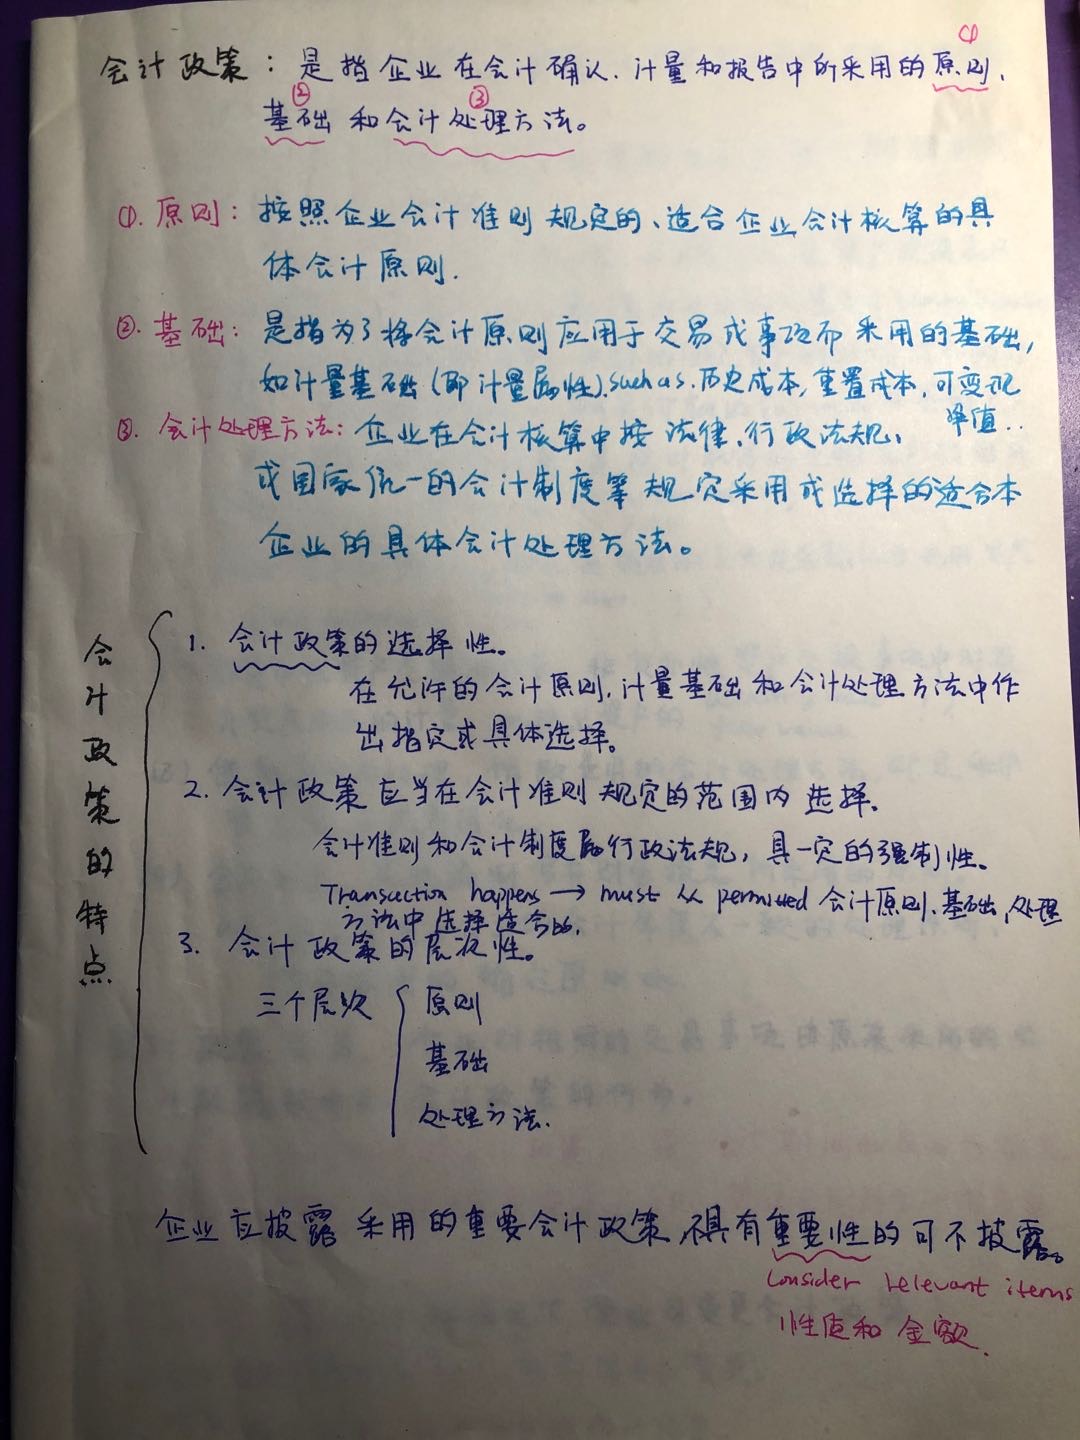 会计政策：是指企业在会计确认、计量和报告中所采用的原则、①
基础②和会计处理方法③。
①. 原则：按照企业会计准则规定的、适合企业会计核算的具
体会计原则.
②. 基础：是指为了将会计原则应用于交易或事项而采用的基础，
如计量基础（即计量属性）. such as. 历史成本, 重置成本, 可变现
净值..
③. 会计处理方法：企业在会计核算中按法律、行政法规、
或国家统一的会计制度等规定采用或选择的适合本
企业的具体会计处理方法。
会计政策的特点
1. 会计政策的选择性。
在允许的会计原则、计量基础和会计处理方法中作
出指定或具体选择。
2. 会计政策应当在会计准则规定的范围内选择.
会计准则和会计制度属行政法规，具一定的强制性。
Transaction happens → must 从 permitted 会计原则、基础、处理
方法中选择适合的.
3. 会计政策的层次性。
三个层次
原则
基础
处理方法.
企业应披露采用的重要会计政策, 不具有重要性的可不披露。
consider relevant items
性质和金额.